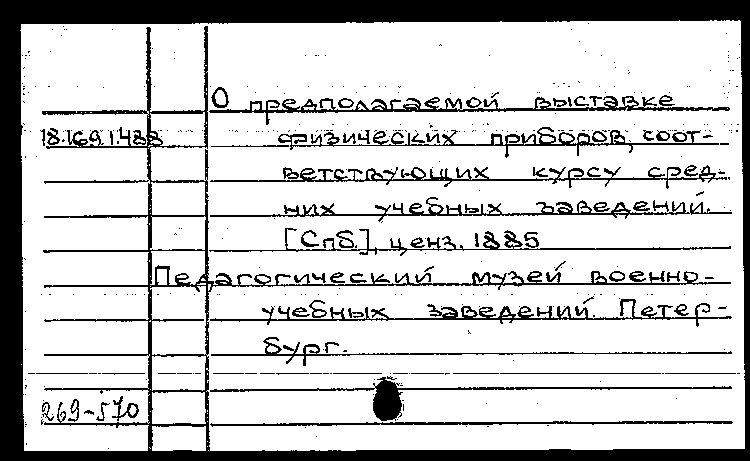 О предполагаемой выставке
18.169.1.488 физических приборов, соот-
ветствующих курсу сред-
них учебных заведений.
[Спб.], ценз. 1885
Педагогический музей военно-
учебных заведений. Петер-
бург.
269-570